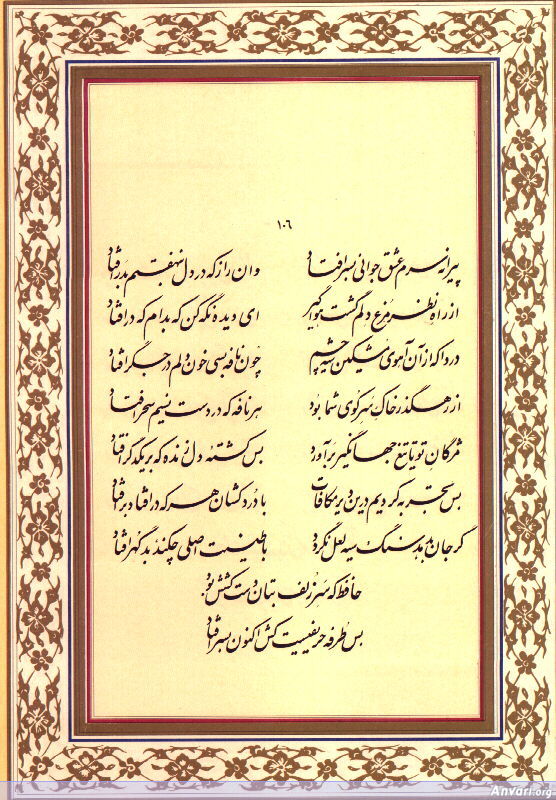 ۱۰۶
پیرانه سرم عشق جوانی بسر افتاد وان راز که در دل بنهفتم بدر افتاد
از راه نظر مرغ دلم گشت هوا گیر ای دیده نگه کن که بدام که در افتاد
دردا که از آن آهوی مشکین سیه چشم چون نافه بسی خون دلم در جگر افتاد
از رهگذر خاک سر کوی شما بود هر نافه که در دست نسیم سحر افتاد
مژگان تو تا تیغ جهانگیر برآورد بس کشته دل زنده که بر یکدگر افتاد
بس تجربه کردیم درین دیر مکافات با درد کشان هر که در افتاد بر افتاد
گر جان بدهد سنگ سیه لعل نگردد با طینت اصلی چکند بد گهر افتاد
حافظ که سر زلف بتان دست کشش بود
بس طرفه حریفیست کش اکنون بسر افتاد
Anvari.org